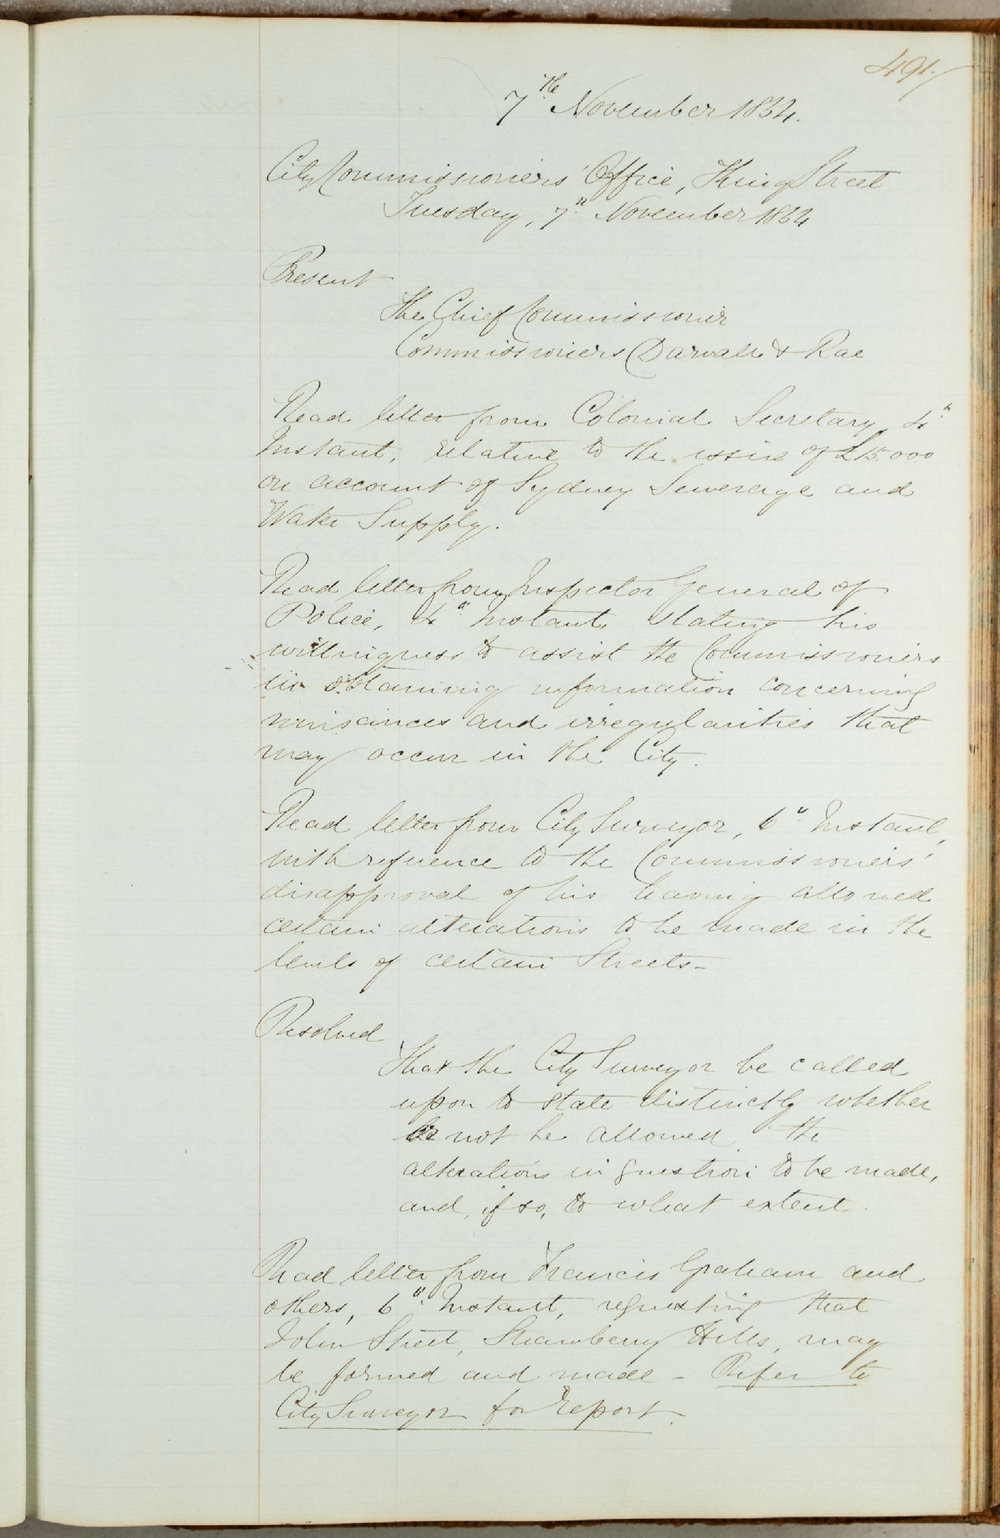 491.
7th November 1854.
City Commissioners' Office, King Street
Tuesday, 7th November 1854
Present
The Chief Commissioner
Commissioners Darvall & Rae
Read letter from Colonial Secretary, 4th
Instant, relative to the issue of £15.000
on account of Sydney Sewerage and
Water Supply.
Read letter from Inspector General of
Police, 4th Instant, stating his
willingness to assist the Commissioners
in obtaining information concerning
nuisances and irregularities that
may occur in the City.
Read letter from City Surveyor, 6th Instant,
with reference to the Commissioners'
disapproval of his having allowed
certain alterations to be made in the
levels of certain Streets -
Resolved
That the City Surveyor be called
upon to state distinctly whether
or not he allowed the
alterations in question to be made,
and, if so, to what extent.
Read letter from Francis Graham and
others, 6th Instant, requesting that
John Street, Strawberry Hills, may
be formed and made - Refer to
City Surveyor for Report.